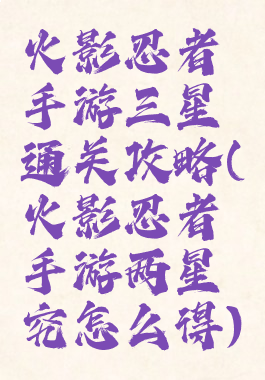 火影忍者
手游三星
通关攻略(
火影忍者
手游两星
究怎么得)